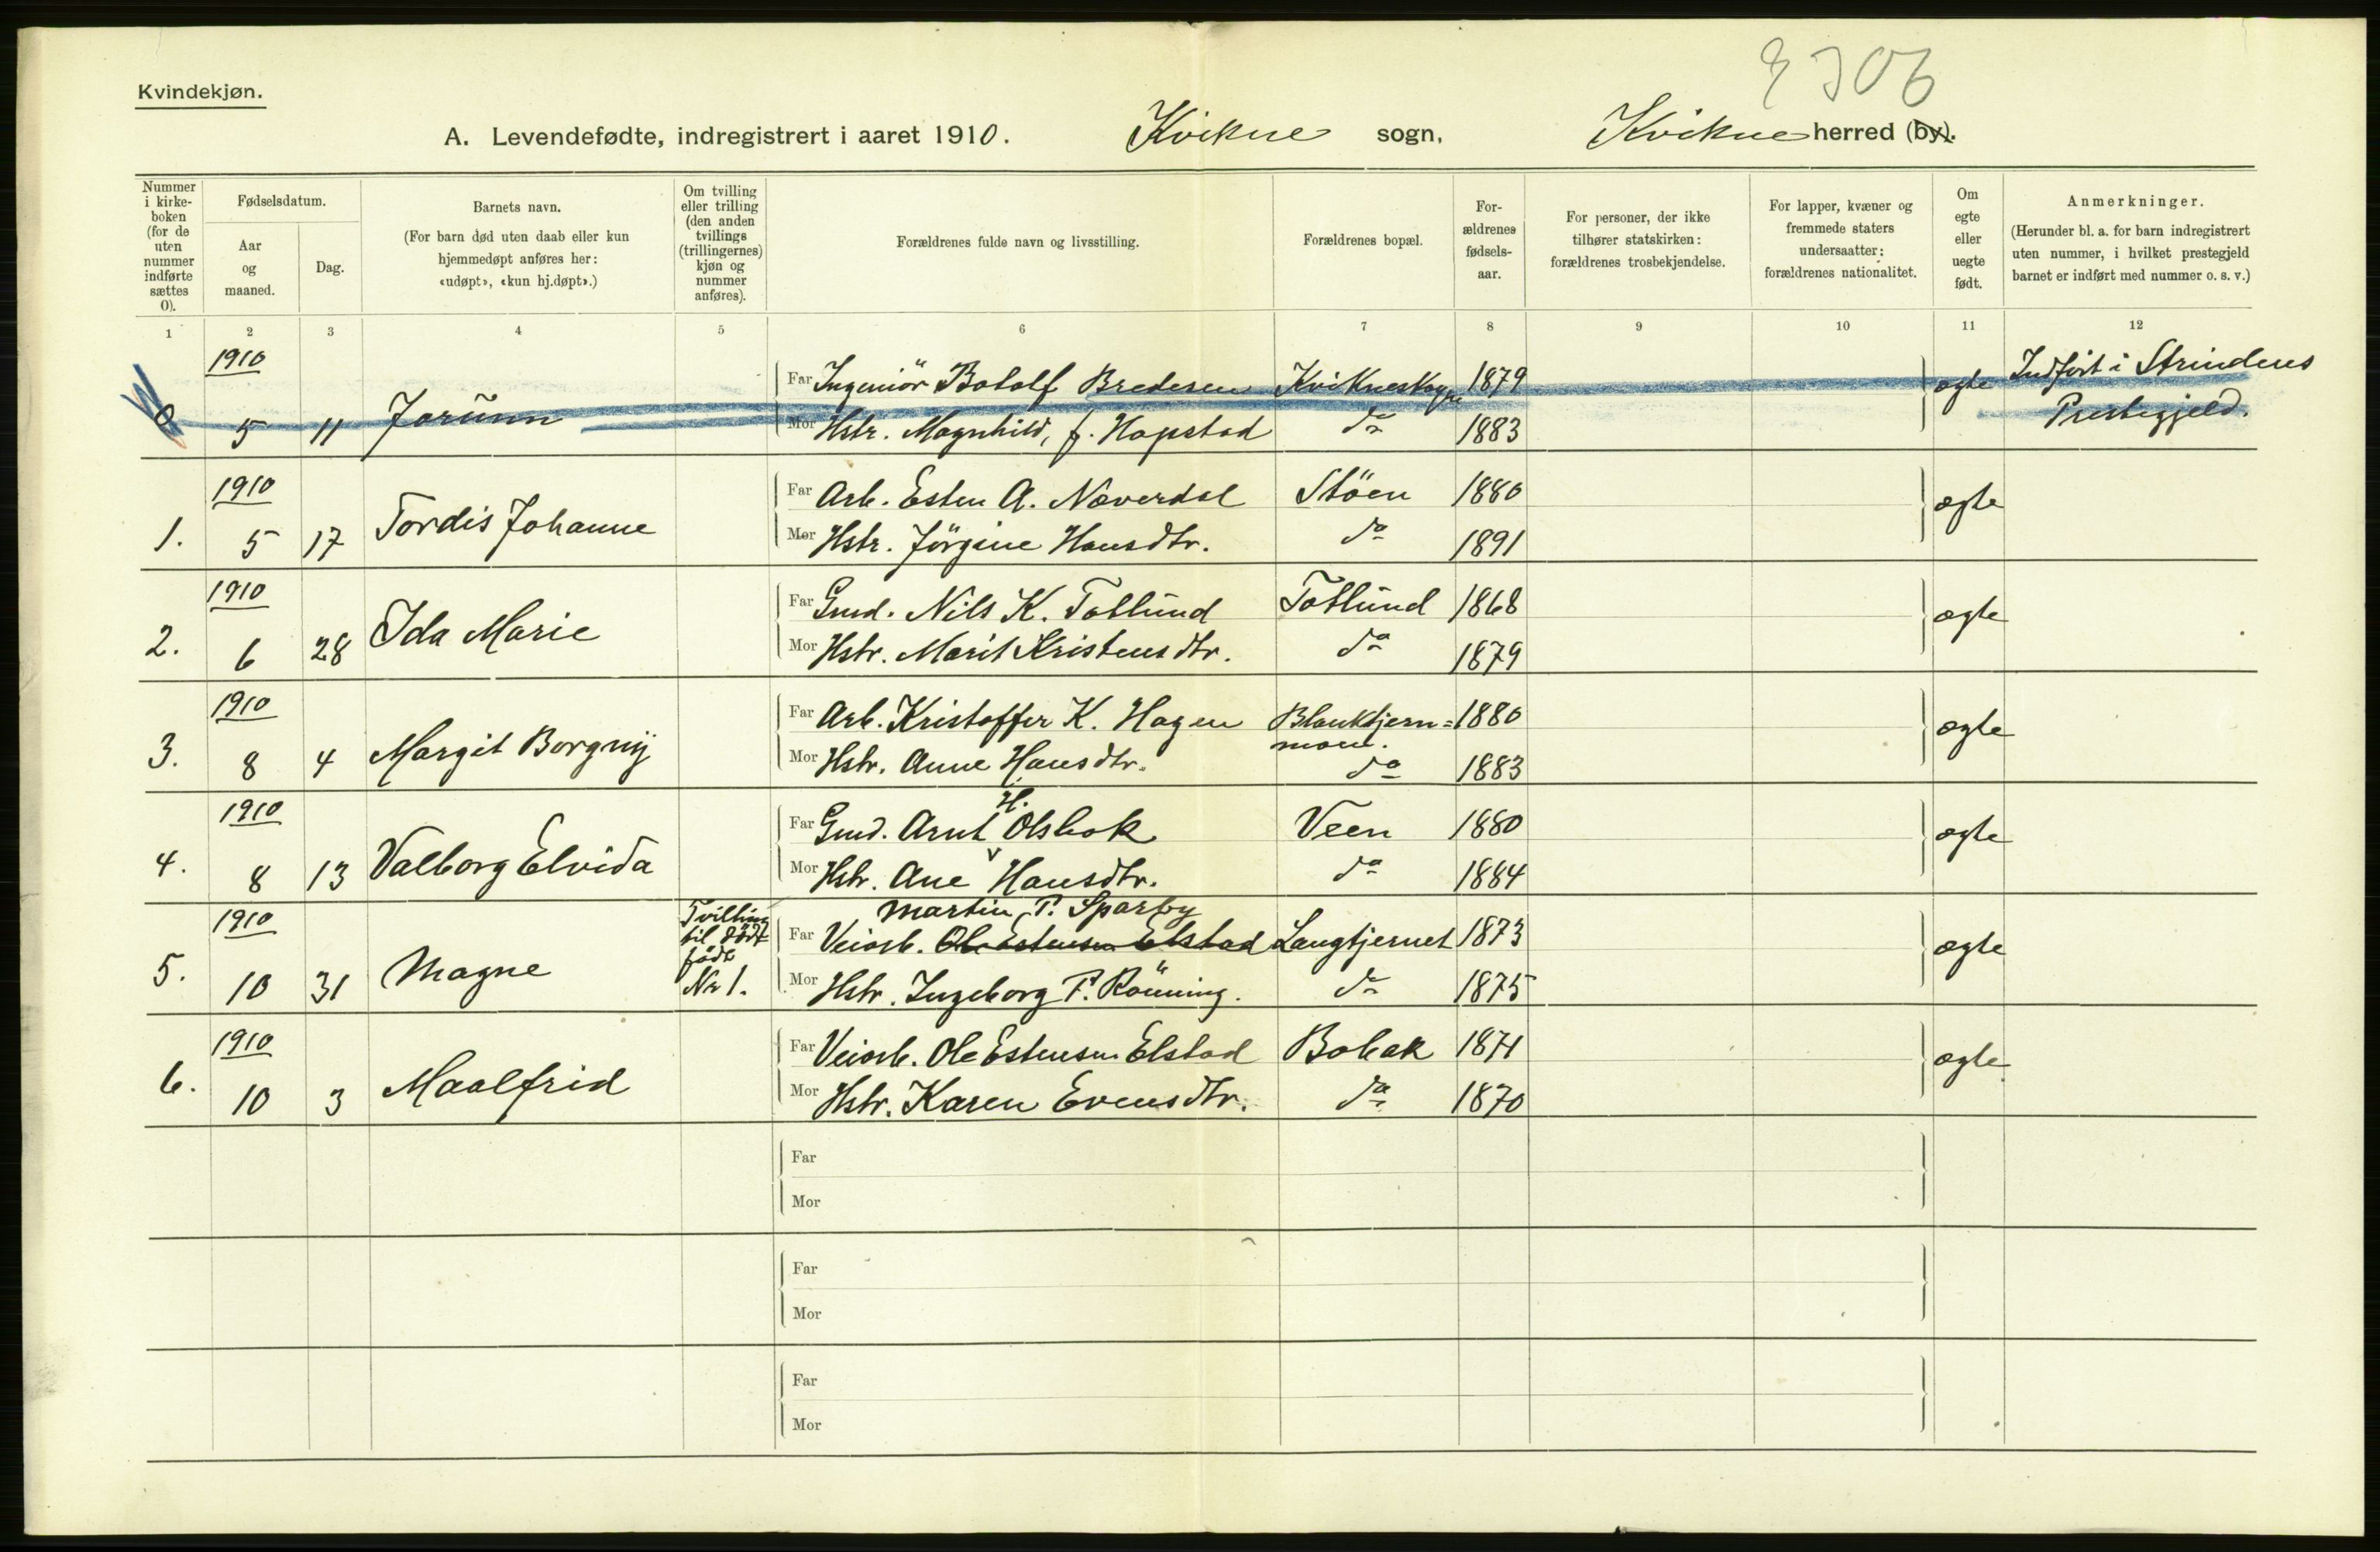 9306
Kvindekjøn.
A. Levendefødte, indregistrert i aaret 1910. Kvikne sogn, Kvikne herred (by).
Nummer i kirke-boken (for de uten nummer indførte sættes 0).
Fødselsdatum.
Aar og maaned.
Dag.
Barnets navn.
(For barn død uten daab eller kun hjemmedøpt anføres her: «udøpt», «kun hj.døpt».)
Om tvilling eller trilling (den anden tvillings (trillingernes) kjøn og nummer anføres).
Forældrenes fulde navn og livsstilling.
Forældrenes bopæl.
For-ældrenes fødsels-aar.
For personer, der ikke tilhører statskirken: forældrenes trosbekjendelse.
For lapper, kvæner og fremmede staters undersaatter: forældrenes nationalitet.
Om egte eller uegte født.
Anmerkninger.
(Herunder bl. a. for barn indregistrert uten nummer, i hvilket prestegjeld barnet er indført med nummer o. s. v.)
1 2 3 4 5 6 7 8 9 10 11 12
1910
0 5 11 Jorunn
Far Ingeniör Botolf Bredesen Kvikneskogen 1879 ægte Indfört i Strindens
Mor Hstr. Magnhild, f. Hapstad do 1883 Prestegjeld.
1910
1. 5 17 Tordis Johanne
Far Arb. Esten A. Næverdal Stöen 1880 ægte
Mor Hstr. Jörgine Hansdtr. do 1891
1910
2. 6 28 Ida Marie
Far Gmd. Nils K. Totlund Totlund 1868 ægte
Mor Hstr. Marit Kristensdtr. do 1879
1910
3. 8 4 Margit Borgny
Far Arb. Kristoffer K. Hagen Blanktjern=moen. 1880 ægte
Mor Hstr. Anne Hansdtr. do 1883
1910
4. 8 13 Valborg Elvida
Far Gmd. Arnt H. Olsbak Veen 1880 ægte
Mor Hstr. Ane Hansdtr. do 1884
1910
5. 10 31 Magne
Tvilling til dödt födt No 1.
Martin P. Sparby
Far Veiarb. Ole Estensen Elstad Langtjernet 1873 ægte
Mor Hstr. Ingeborg P. Rönning. do 1875
1910
6. 10 3 Maalfrid
Far Veiarb. Ole Estensen Elstad Bobak 1871 ægte
Mor Hstr. Karen Evensdtr. do 1870
Far
Mor
Far
Mor
Far
Mor